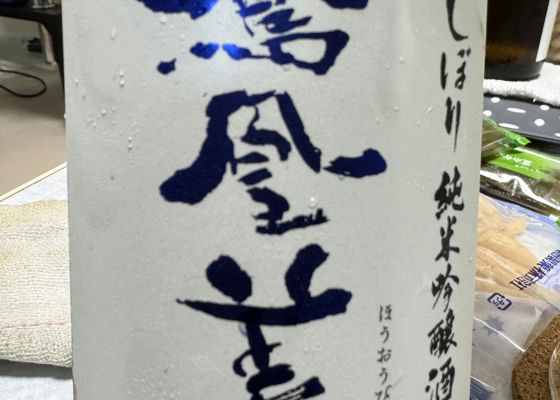 しぼり 純米吟醸酒
鳳凰美
ほうおうび